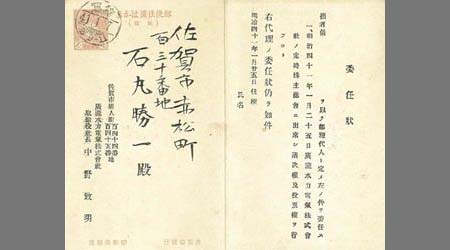 委任狀
拙者儀
ヲ以テ部理代人ト定メ左ノ件ヲ委任ス
一、明治四十一年一月二十五日廣瀧水力電氣株式會
社ノ定時株主總會ニ出席シ議決權及投票權ヲ行
フコト
右代理ノ委任狀仍テ如件
明治四十一年一月廿五日 住所
氏名
佐賀市赤松町
百三十番地
石丸勝一殿
佐賀市唐人町百四十四番地
百四十五番地
廣瀧水力電氣株式會社
取締役社長 中野致明